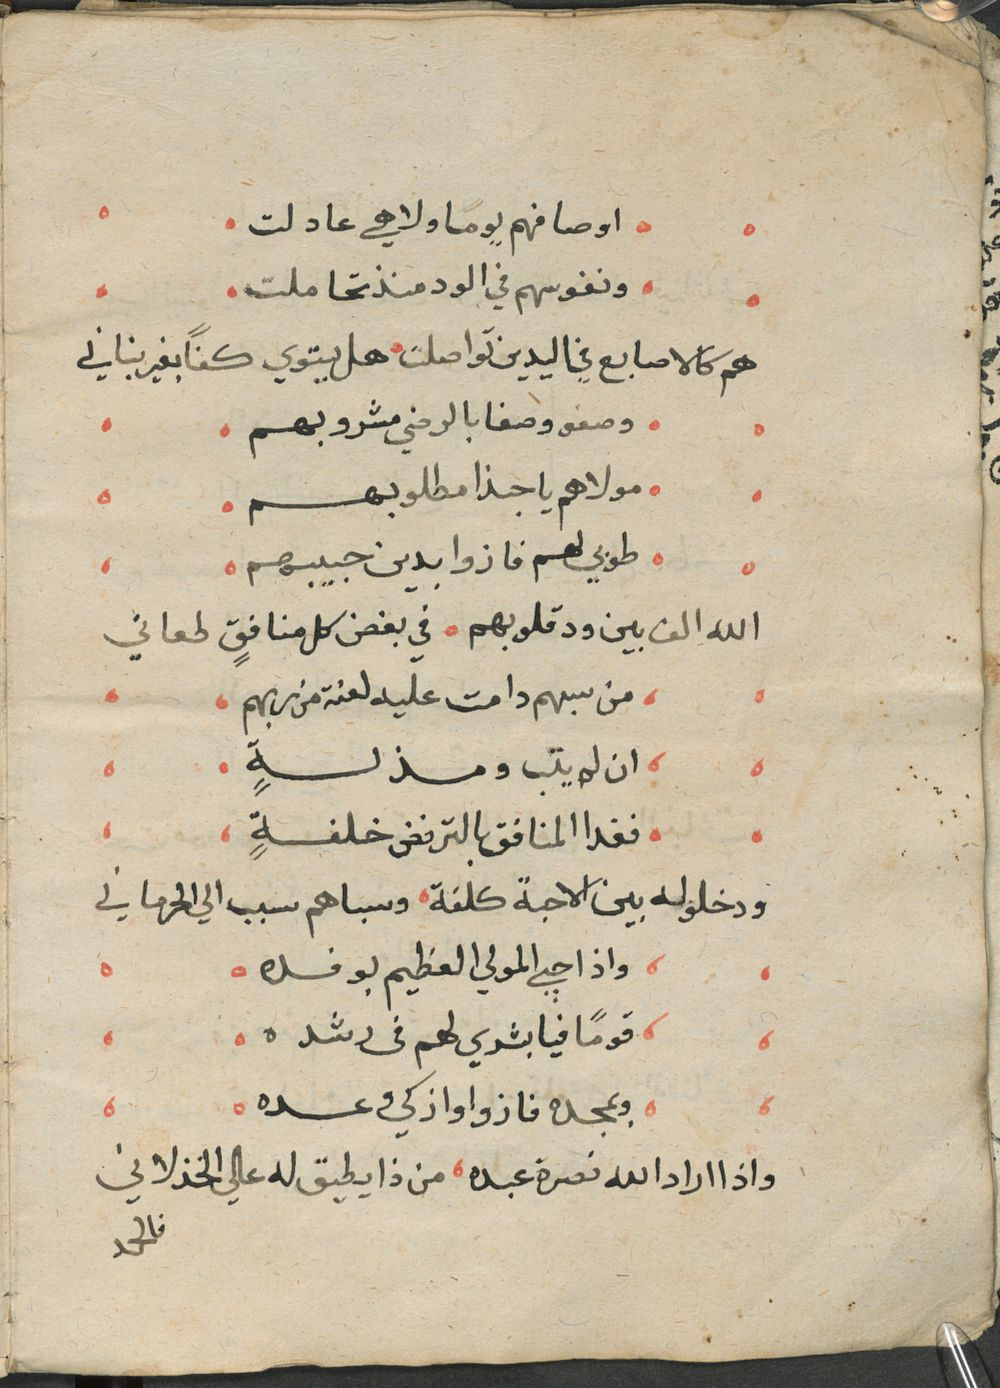 اوصافهم يوما ولا هي عادلت
ونفوسهم في الود منذ تحاملت
هم كالاصابع في اليدين تواصلت هل يستوي كفاً بغير بناني
وصفو وصفا بالرضي مشروبهم
مولاهم يا حبذا مطلوبهم
طوبي لهم فازوا بدين حبيبهم
الله الف بين ود قلوبهم في بغض كل منافقٍ طعاني
من سبهم دامت عليه لعنة من ربهم
ان لم يتب ومذلةٍ
فغدا المنافق بالترفض خلفةٍ
ودخوله بين الاحبة كلفة وسباهم سبب الي الحرماني
واذا حبي المولي العظيم بوفده
قومًا فيا بشري لهم في رشده
وبمجده فازوا واذكي وعده
واذا اراد الله نصرة عبده من ذا يطيق له علي الخذلاني
فالحمد